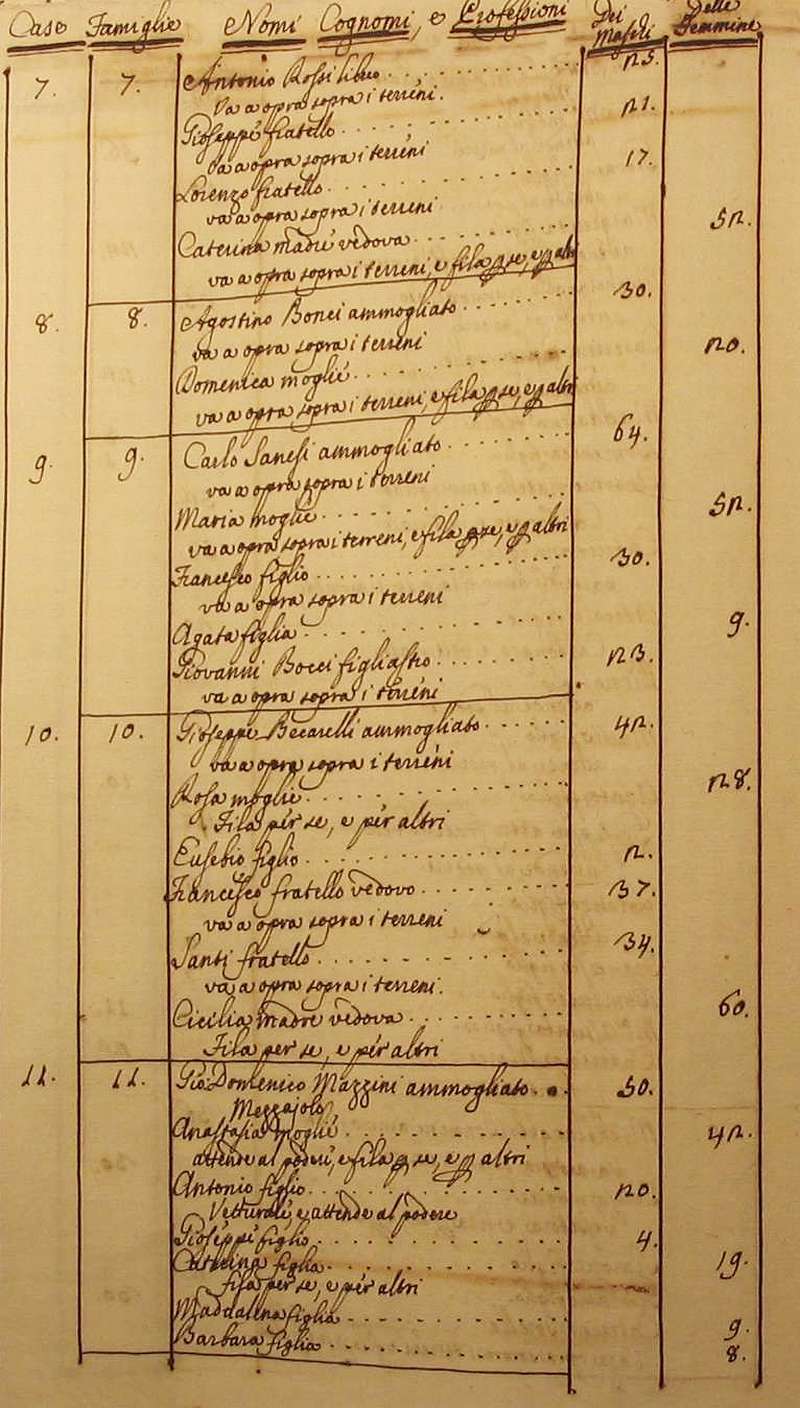 Case Famiglie Nomi Cognomi, e Professioni Dei Maschi Delle Femmine
7. 7. Antonio Rossi libero 25.
Va a opra sopra i terreni.
Gioseppe fratello 21.
Va a opra sopra i terreni
Lorenzo fratello 17.
va a opra sopra i terreni
Caterina madre vedova 52.
va a opra sopra i terreni, e fila ꝑ se, e ꝑ altri
8. 8. Agostino Bonci ammogliato 30.
va a opra sopra i terreni
Domenica moglie 20.
va a opra sopra i terreni, e fila ꝑ se, e ꝑ altri
9. 9. Carlo Sanesi ammogliato 64.
va a opra sopra i terreni
Maria moglie 52.
va a opra sopra i terreni, e fila ꝑ se, e ꝑ altri
Francesco figlio 30.
va a opra sopra i terreni
Agata figlia 9.
Giovanni Bocci figliastro 23.
va a opra sopra i terreni
10. 10. Gioseppe Becarelli ammogliato 42.
va a opra sopra i terreni
Rosa moglie 28.
Fila per se, e per altri
Eusebio figlio 2.
Francesco fratello vedovo 37.
va a opra sopra i terreni
Santi fratello 34.
va a opra sopra i terreni.
Cicilia madre vedova 60.
Fila per se, e per altri
11. 11. Gio: Domenico Mazzini ammogliato 50.
Mezzajolo
Anastasia moglie 42.
attende al podere, e fila ꝑ se, e ꝑ altri
Antonio figlio 20.
Vetturale, e attende al podere
Gioseppe figlio 4.
Caterina figlia 19.
fila per se, e per altri
Maddalena figlia 9.
Barbara figlia 8.